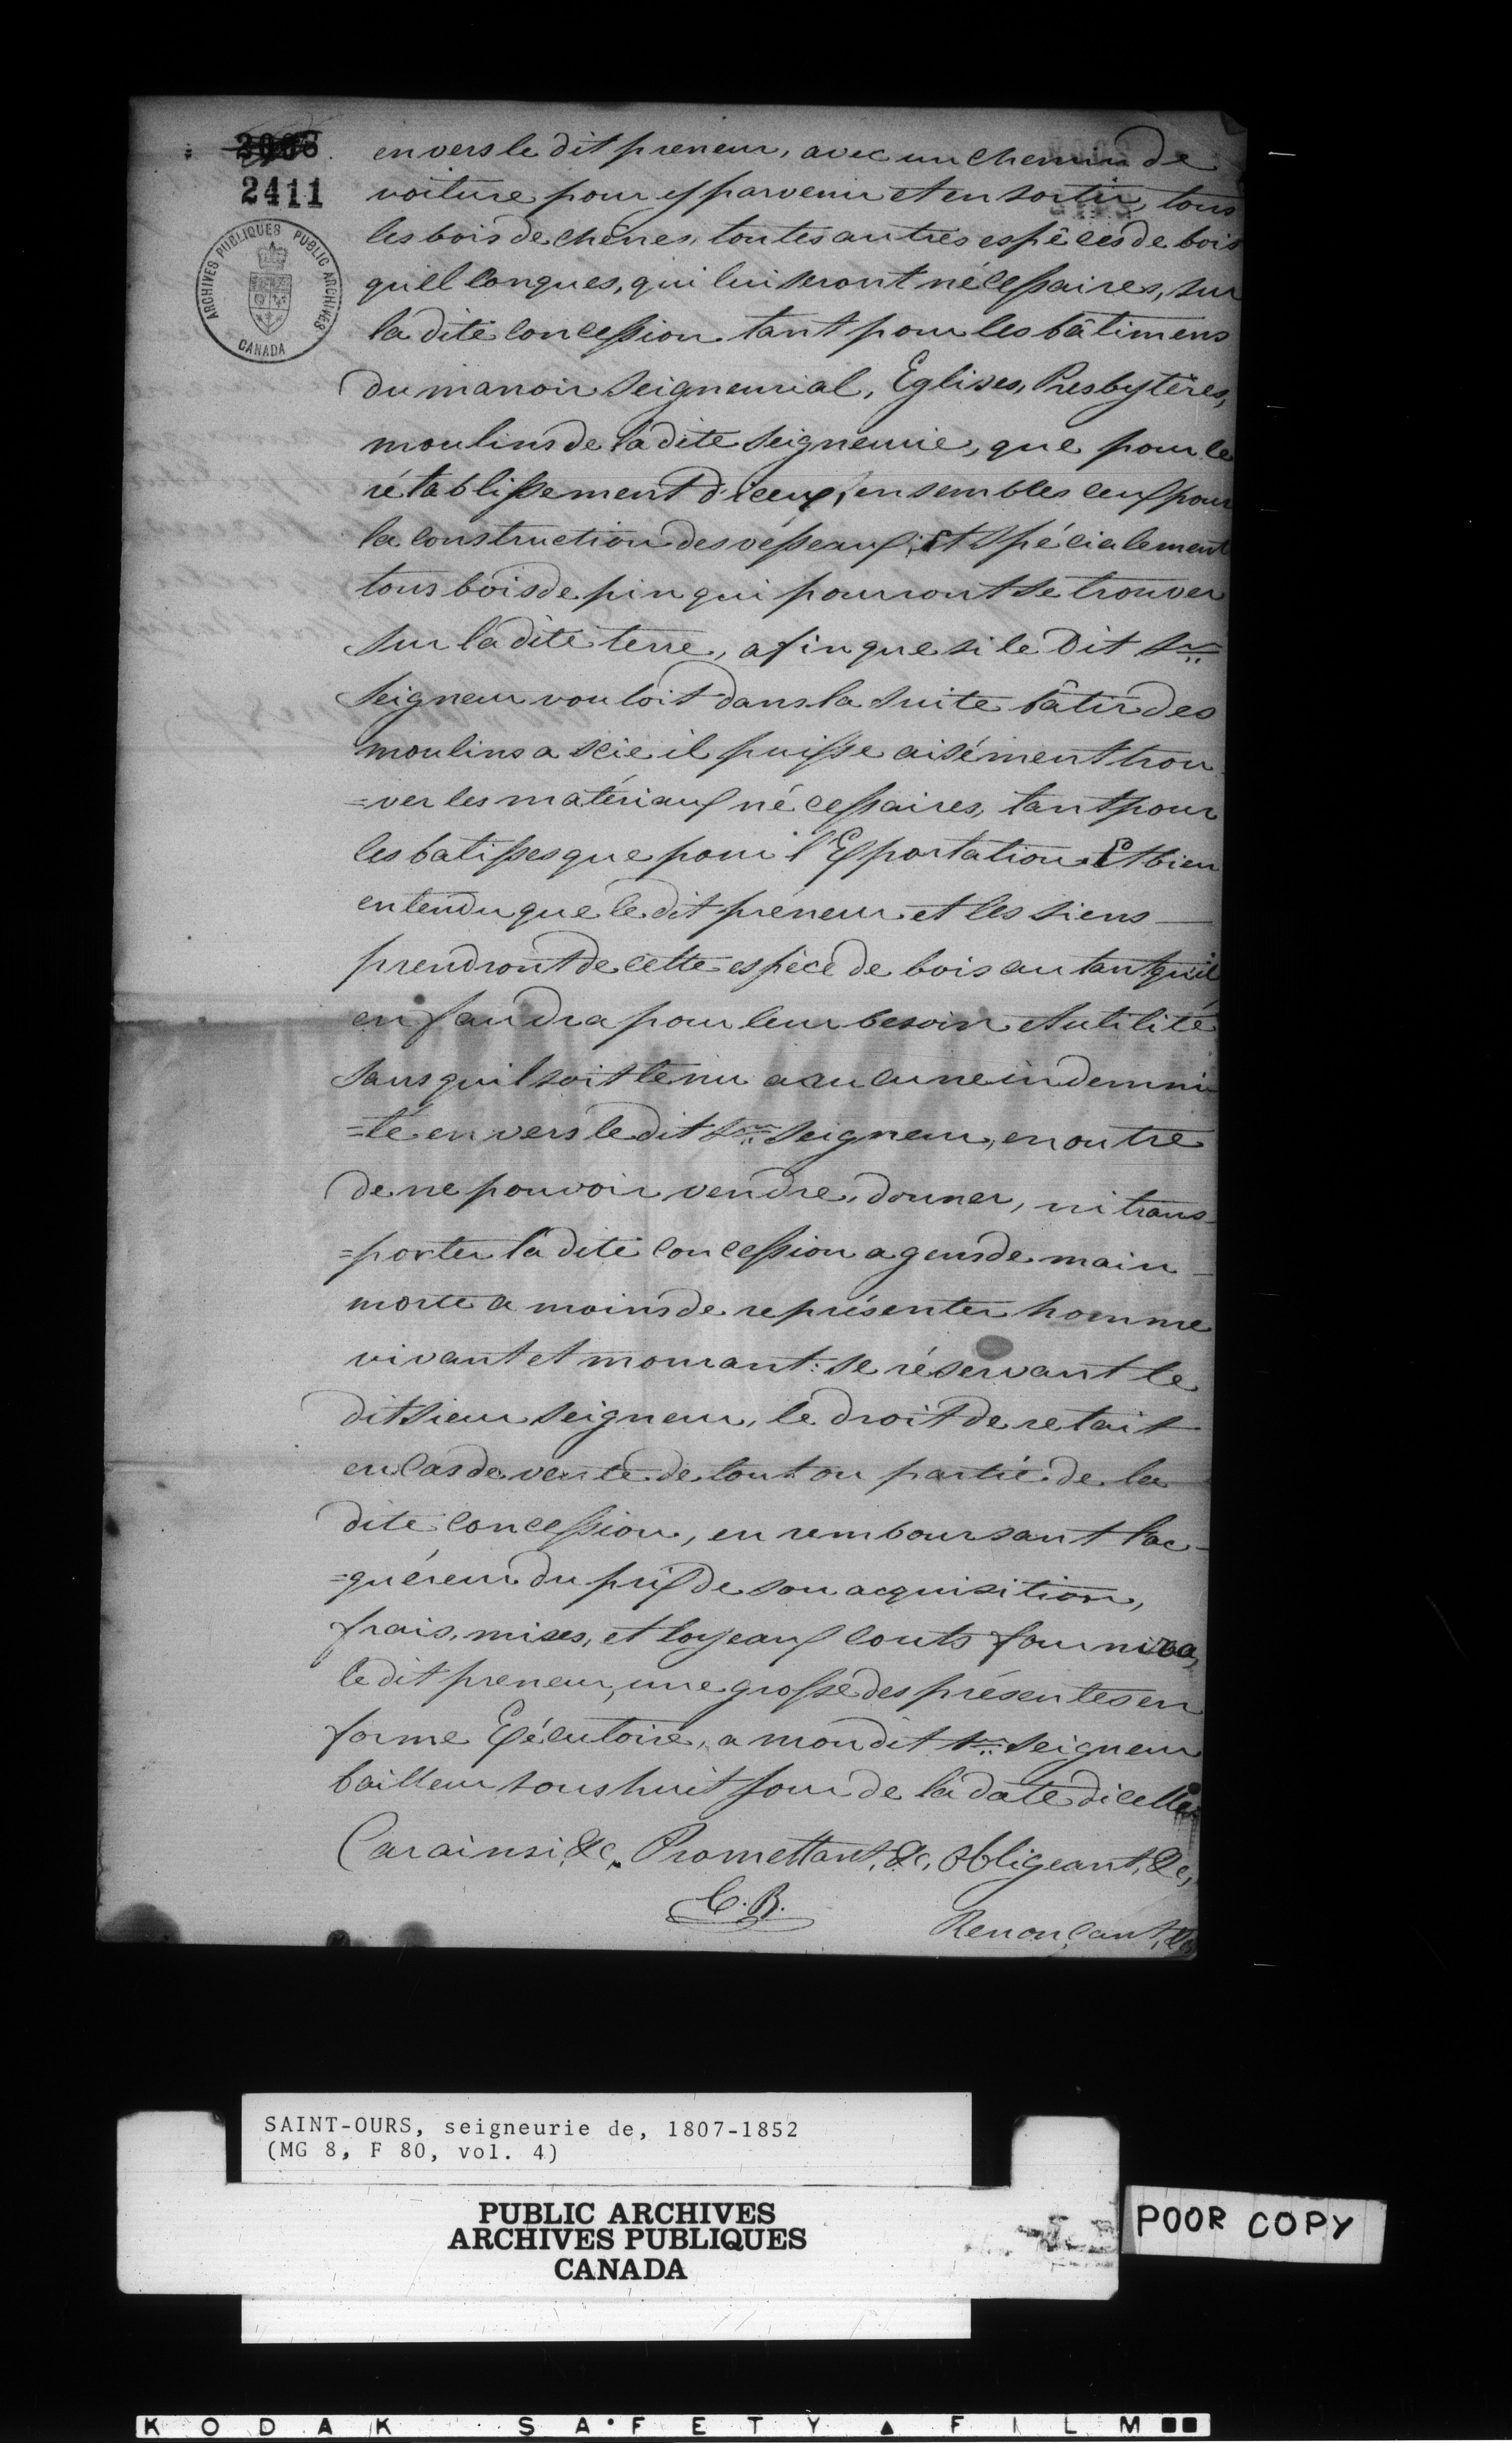 2411
ARCHIVES PUBLIQUES PUBLIC ARCHIVES
CANADA
envers le dit preneur, avec un chemin de
voiture pour y parvenir et en sortir, tous
les bois de chênes, toutes autres espêces de bois
quellconques, qui lui seront nécessaires, sur
la dite concession tant pour les bâtimens
du manoir Seigneurial, Eglises, Presbytères,
moulins de la dite Seigneurie, que pour le
rétablissement d'iceux, ensembles ceux pour
la construction des vésseaux, Et spécialement
tous bois de pin qui pourront se trouver
sur la dite terre, afin que si le Dit Sr.
Seigneur vouloit dans la suite bâtir des
moulins a scie il puisse aisément trou-
=ver les matériaux nécessaires, tant pour
les batisses que pour l'Exportation Et bien
entendu que le dit preneur et les siens
prendront de cette espèce de bois autant qu'il
en faudra pour leur besoin et utilité
sans qu'il soit tenu a aucune indemni
=té envers le dit Sr. Seigneur, en outre
de ne pouvoir vendre, donner, ni trans-
=porter la dite concession a gens de main-
morte a moins de représenter homme
vivant et mourant: se réservant le
dit sieur Seigneur, le droit de retait
en cas de vente de tout ou partie de la
dite concession, en remboursant l'ac-
=quéreur du prix de son acquisition,
frais, mises, et loyeaux couts fournira,
le dit preneur, une grosse des présentes en
forme Exécutoire, a mon dit Sr. Seigneur
bailleur sous huit jour de la date d'icelles
Car ainsi, &c, Promettant, &c, Obligeant, &c,
C. B.
Renonçant, &c
SAINT-OURS, seigneurie de, 1807-1852
(MG 8, F 80, vol. 4)
PUBLIC ARCHIVES
ARCHIVES PUBLIQUES
CANADA
POOR COPY
KODAK SAFETY FILM